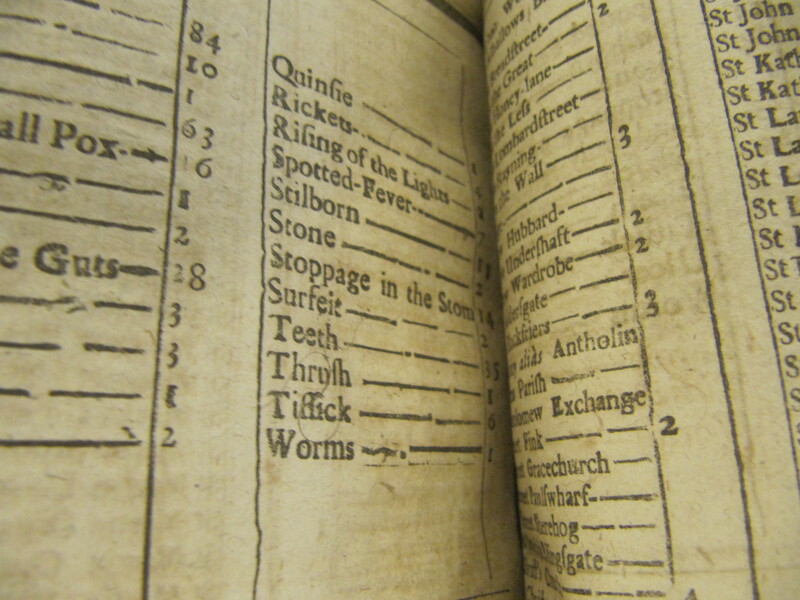 84
10
1
63
all Pox- 6
1
2
e Guts 28
3
3
1
2
Quinſie
Rickets
Riſing of the Lights
Spotted-Fever 7
Stilborn 11
Stone 2
Stoppage in the Stom 14
Surfeit 2
Teeth 35
Thruſh 1
Tiſſick 6
Worms 1
2
readſtreet
Great
oney-lane
Leſs
ombardſtreet
3
Wall
Hubbard-
Underſhaft 2
Wardrobe 2
erſgate
ckfriers 3
alias Antholin
Pariſh
olomew Exchange
Fink 2
Gracechurch
Paulſwharf-
Sherehog
lingſgate
4
St John
St John
St Kath
St Kat
St La
St La
St L
St L
St
St
St
St
S